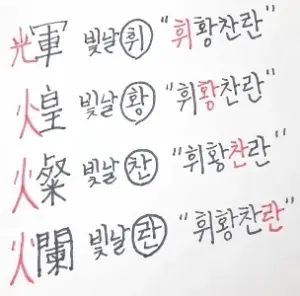 輝 빛날 휘 "휘황찬란"
煌 빛날 황 "휘황찬란"
燦 빛날 찬 "휘황찬란"
爛 빛날 란 "휘황찬란"